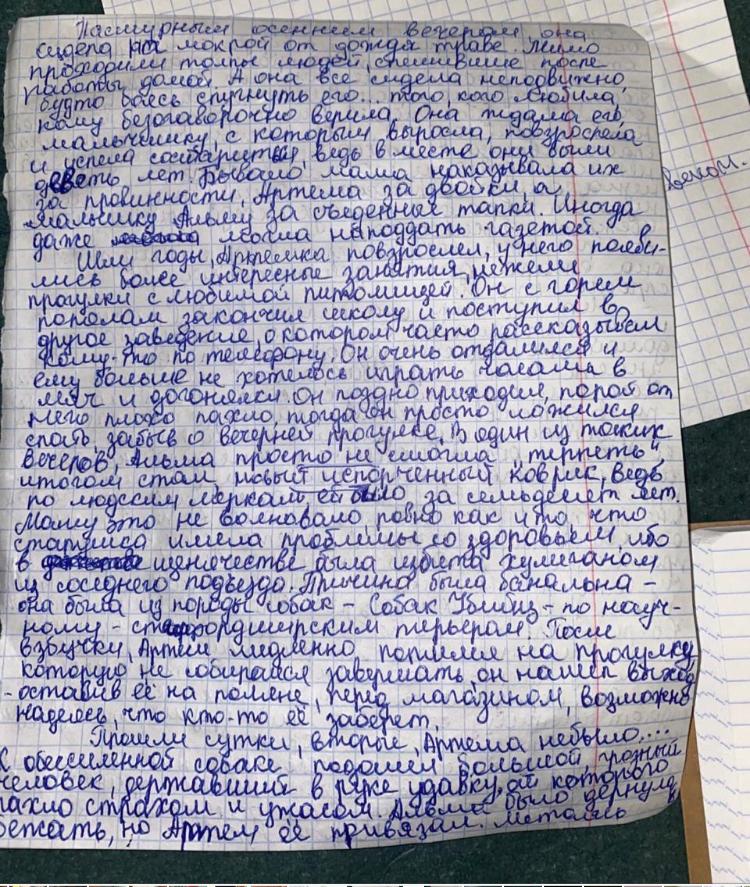 Пасмурным осенним вечером она
сидела на мокрой от дождя траве. Мимо
проходили толпы людей, спешившие после
работы домой. А она все сидела неподвижно,
будто боясь спугнуть его... того, кого любила,
кому безоговорочно верила. Она ждала его,
мальчишку, с которым выросла, повзрослела
и успела состариться, ведь вместе они были
девять лет. Бывало мама наказывала их
за провинности, Артема за двойки, а
малышку Альму за съеденные тапки. Иногда
даже могла наподдать газетой.
Шли годы, Артемка повзрослел, у него появи-
лись более интересные занятия, нежели
прогулки с любимой питомицей. Он с горем
пополам закончил школу и поступил в
другое заведение, о котором часто рассказывает
кому-то по телефону. Он очень отдалился и
ему больше не хотелось играть часами в
мяч и догонялки. Он поздно приходил, порой от
него плохо пахло, тогда он просто ложился
спать, забыв о вечерней прогулке. В один из таких
вечеров, Альма просто не смогла "терпеть",
итогом стал новый испорченный коврик, ведь
по людским меркам ей было за семьдесят лет.
Маму это не волновало, ровно как и то, что
старушка имела проблемы со здоровьем, ибо
в щеночестве была избита хулиганом
из соседнего подъезда. Причина была банальна -
она была из породы собак - Собак Убийц - по науч-
ному - стаффордширским терьером. После
взбучки, Артем медленно поплелся на прогулку
которую не собирался завершать, он нашел выход
- оставив её на поляне, перед магазином, возможно
надеясь, что кто-то её заберет.
Прошли сутки, вторые, Артема небыло....
К обессиленной собаке подошел большой грозный
человек, державший в руке удавку, от которого
пахло страхом и ужасом. Альма было дернулась
бежать, но Артем её привязал. Метаясь в
веком.